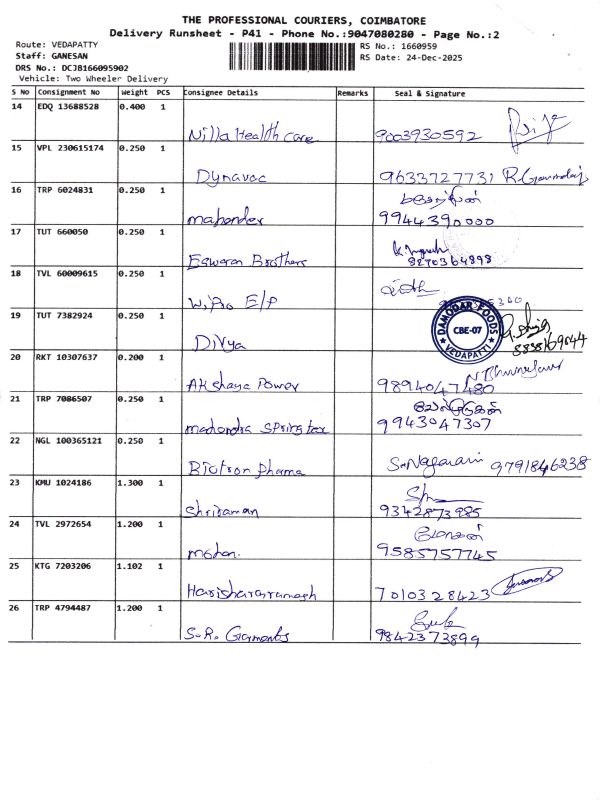 THE PROFESSIONAL COURIERS, COIMBATORE
Delivery Runsheet - P41 - Phone No.:9047080280 - Page No.:2
Route: VEDAPATTY
RS No.: 1660959
Staff: GANESAN
RS Date: 24-Dec-2025
DRS No.: DCJB166095902
Vehicle: Two Wheeler Delivery
S No Consignment No Weight PCS Consignee Details Remarks Seal & Signature
14 EDQ 13688528 0.400 1
Nilla Health care 9003930592
15 VPL 230615174 0.250 1
Dynavac 9633727731
16 TRP 6024831 0.250 1
mahender 9944390000
17 TUT 660050 0.250 1
Eswaran Brothers 8270364898
18 TVL 60009615 0.250 1
Wipro E/P
19 TUT 7382924 0.250 1
DAMODAR FOODS
CBE-07
VEDAPATTI
Divya
20 RKT 10307637 0.200 1
Akshaya Power 9894047480
21 TRP 7086507 0.250 1
mahendra Spring tex 9943047307
22 NGL 100365121 0.250 1
Biotron pharma 9791846238
23 KMU 1024186 1.300 1
Shriraman 9342873985
24 TVL 2972654 1.200 1
Mohan. 9585757745
25 KTG 7203206 1.102 1
7010328423
26 TRP 4794487 1.200 1
S.R. Garments 9842373899